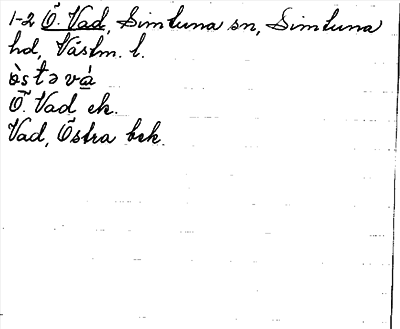 1-2 Ö. Vad, Simtuna sn, Simtuna
hd, Västm. l.
ö̀stəvá
Ö. Vad ek.
Vad, Östra bek.